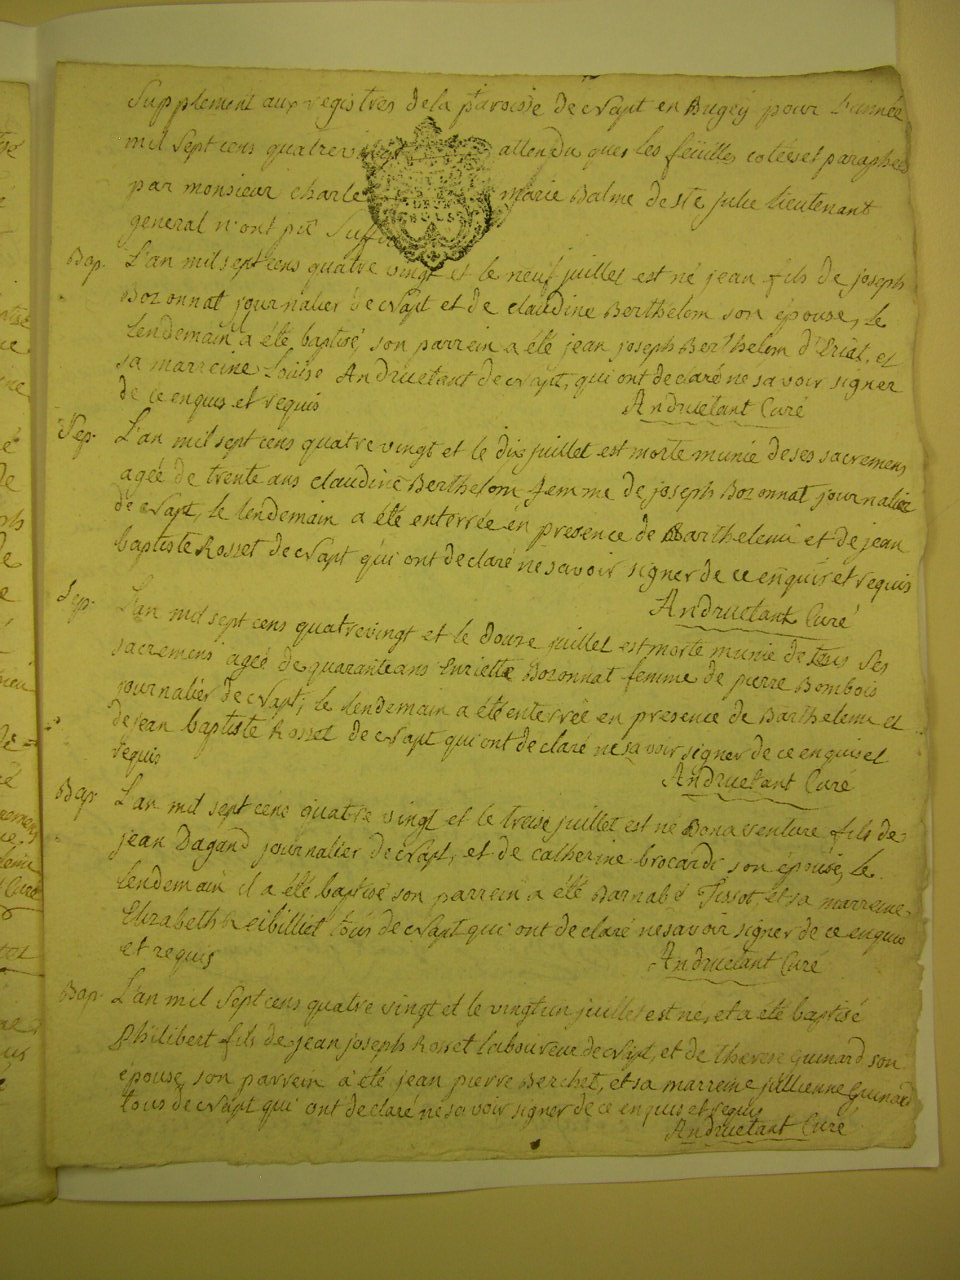 Supplement aux registres de la paroisse de Napt en Bugey pour l'année
mil sept cens quatre vingt attendu que les feuilles cotées et paraphées
par monsieur charle marie Balme de ste julie lieutenant
general n'ont pû suffi
Bap. L'an mil sept cens quatre vingt et le neuf juillet est né jean fils de joseph
Bozonnat journalier de Napt et de claudine Berthelom son épouse, le
lendemain a été baptisé, son parrein a été jean joseph Berthelom d'Uriat, et
sa marreine Louise Andruetant de Napt, qui ont declaré ne savoir signer
de ce enquis et requis Andruetant Curé
Sep. L'an mil sept cens quatre vingt et le dix juillet est morte munie de ses sacremens
agée de trente ans claudine Berthelom femme de joseph Bozonnat journalier
de Napt, le lendemain a été enterrée en presence de Barthelemi et de jean
baptiste Rosset de Napt qui ont declaré ne savoir signer de ce enquis et requis
Andruetant Curé
Sep. L'an mil sept cens quatrevingt et le douze juillet est morte munie de tous ses
sacremens ageé de quarante ans Enriette Bozonnat femme de pierre Bombois
journalier de Napt, le lendemain a été enterrée en presence de Barthelemi et
de jean baptiste Rosset de Napt qui ont declaré ne savoir signer de ce enquis et
requis Andruetant Curé
Bap. L'an mil sept cens quatre vingt et le treise juillet est né Bonaventure fils de
jean Dagand journalier de Napt, et de catherine brocard son épouse, le
lendemain il a été baptisé son parrein a été Barnabé Tissot, et sa marreine
Elizabeth Reibilliet tous de Napt qui ont declaré ne savoir signer de ce enquis
et requis Andruetant Curé
Bap. L'an mil sept cens quatre vingt et le vingt un juillet est né, et a été baptisé
Philibert fils de jean joseph Rosset laboureur de Napt, et de therese Guinard son
epouse, son parrein a été jean pierre Berchet, et sa marreine jullienne Guinard
tous de Napt qui ont declaré ne savoir signer de ce enquis et requis
Andruetant Curé